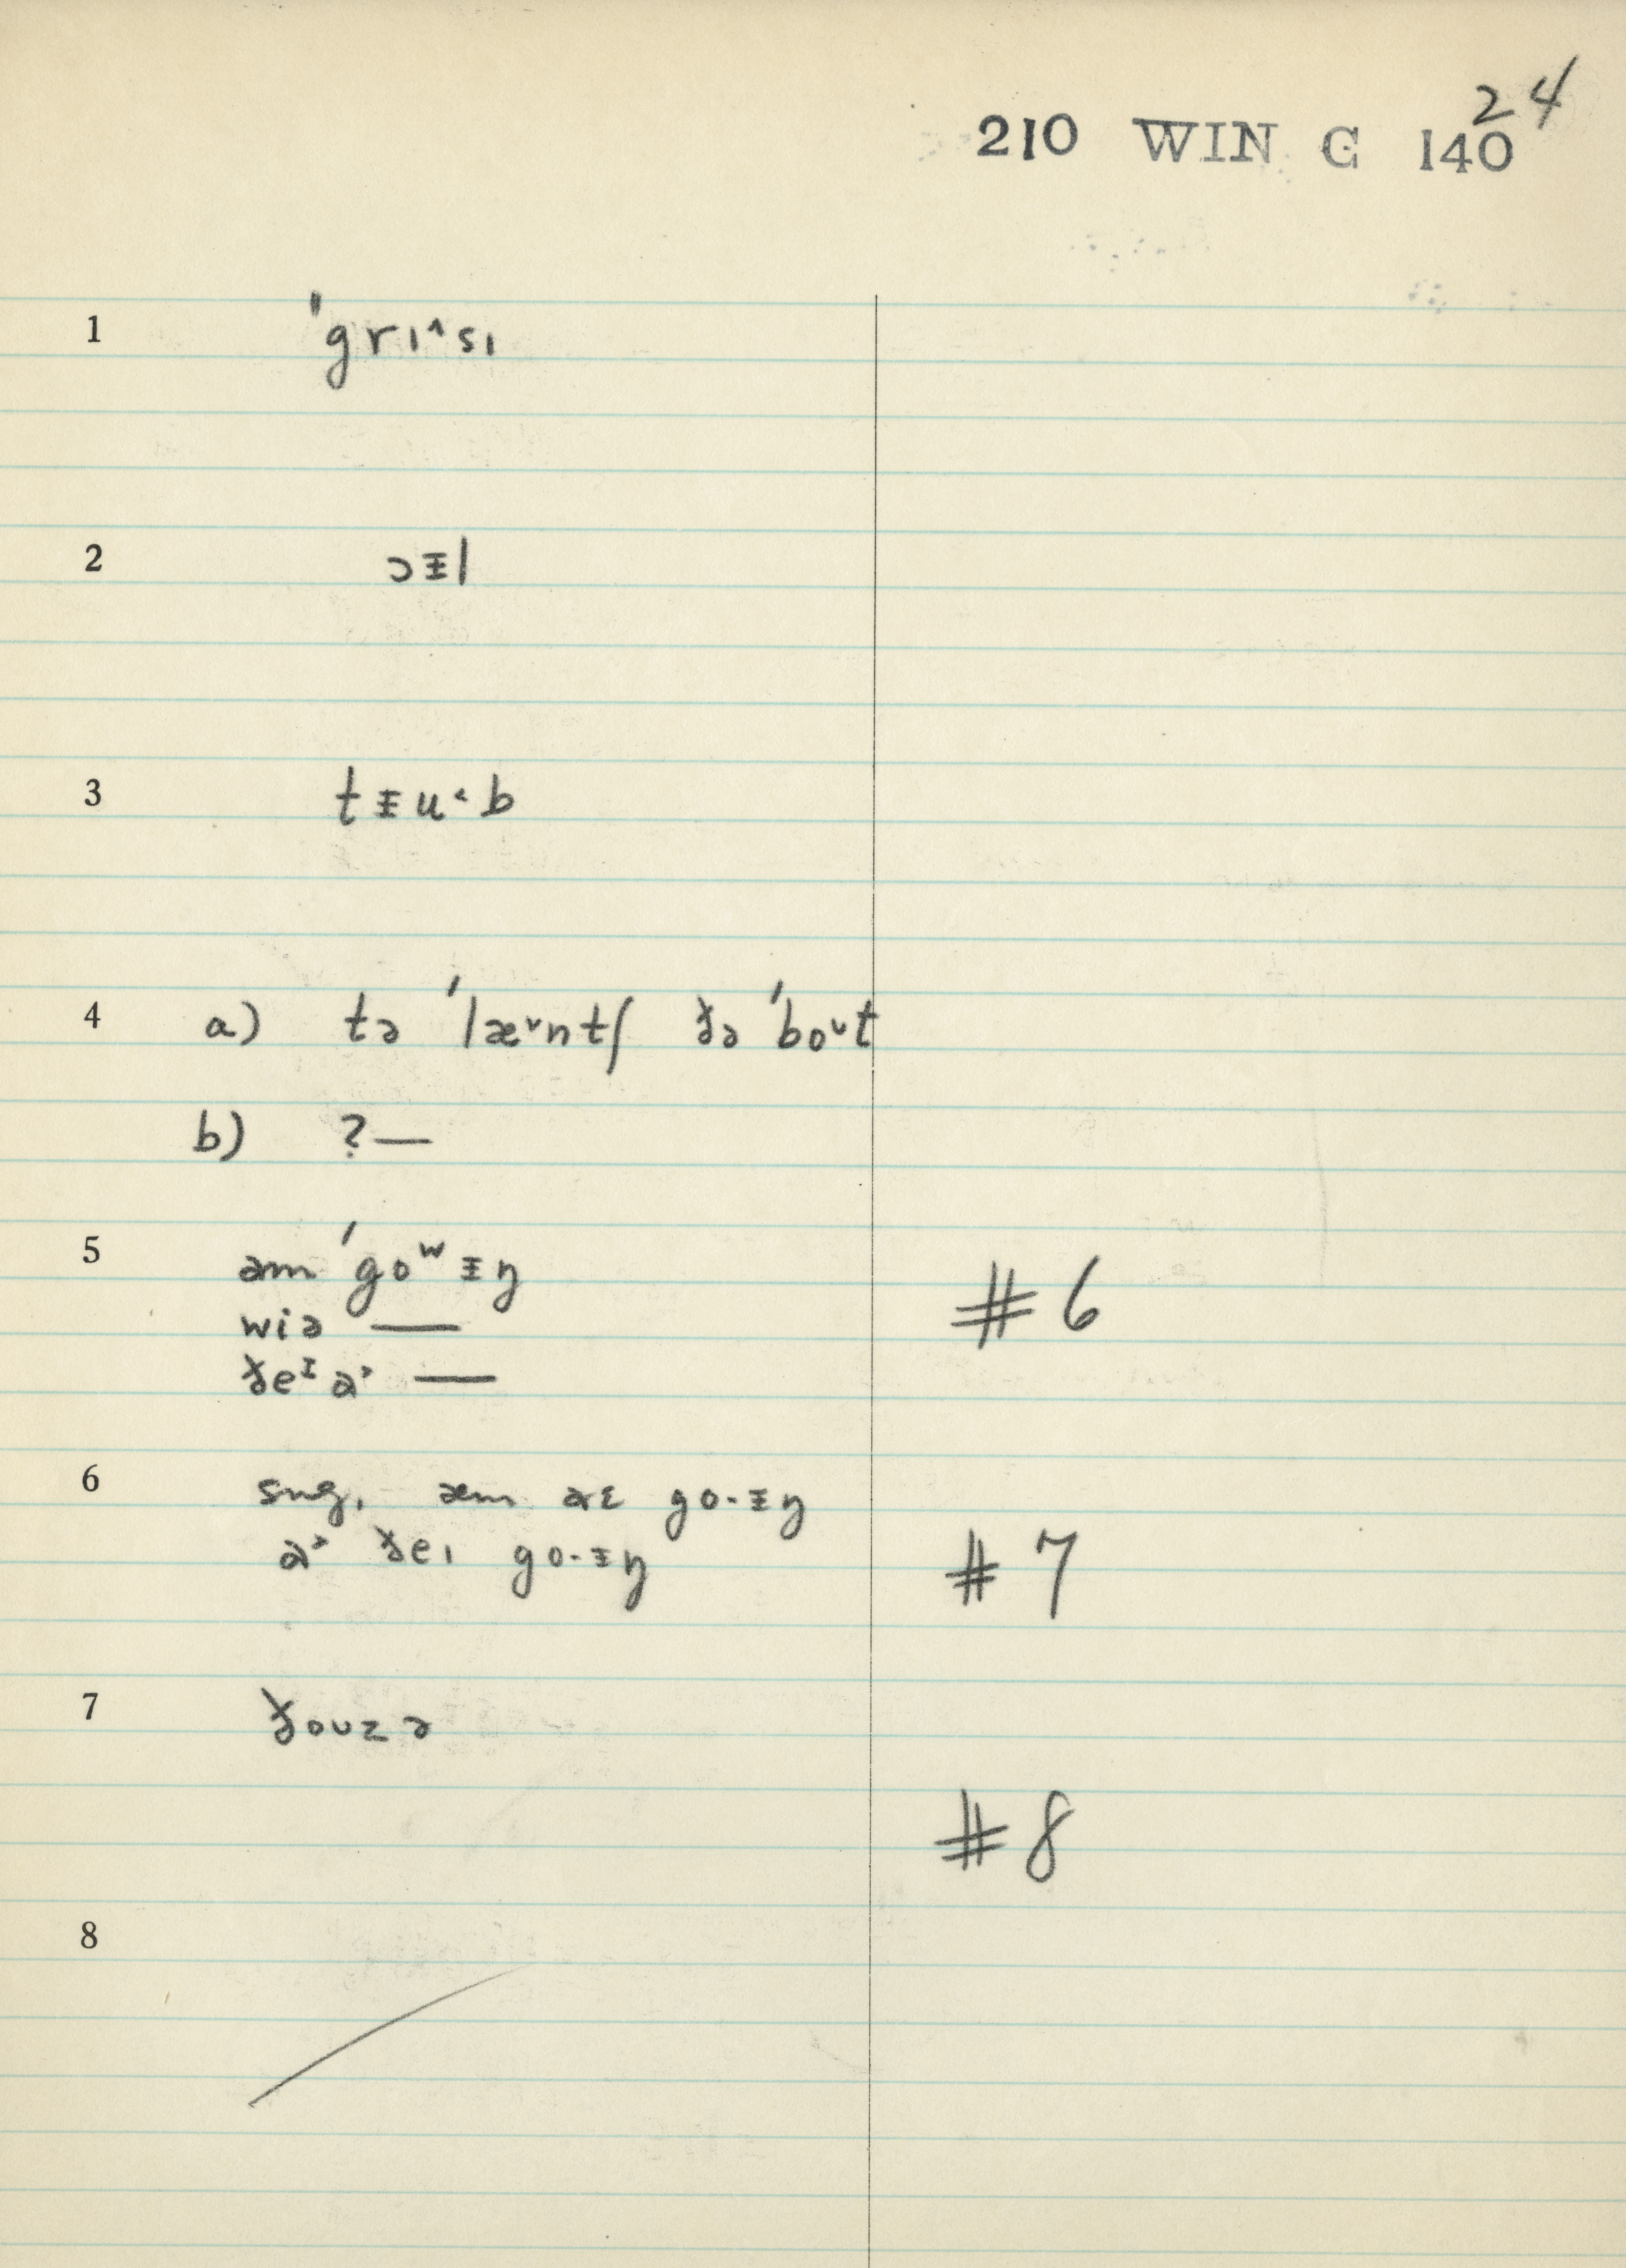 24
210 WIN C 140
1 ˈgrɪ˄sɪ
2 ɔɨl
3 tɨu˂b
4 a) tə ˈlæ˅ntʃ ðə ˈbo˅t
b) ?—
5 əm ˈgoʷɨŋ #6
wiə —
ðeᴵ ə˃ —
6 sng. æm go·ɨŋ
ə˃ ðeɪ go·ɨŋ #7
7 ðoʊzə
#8
8